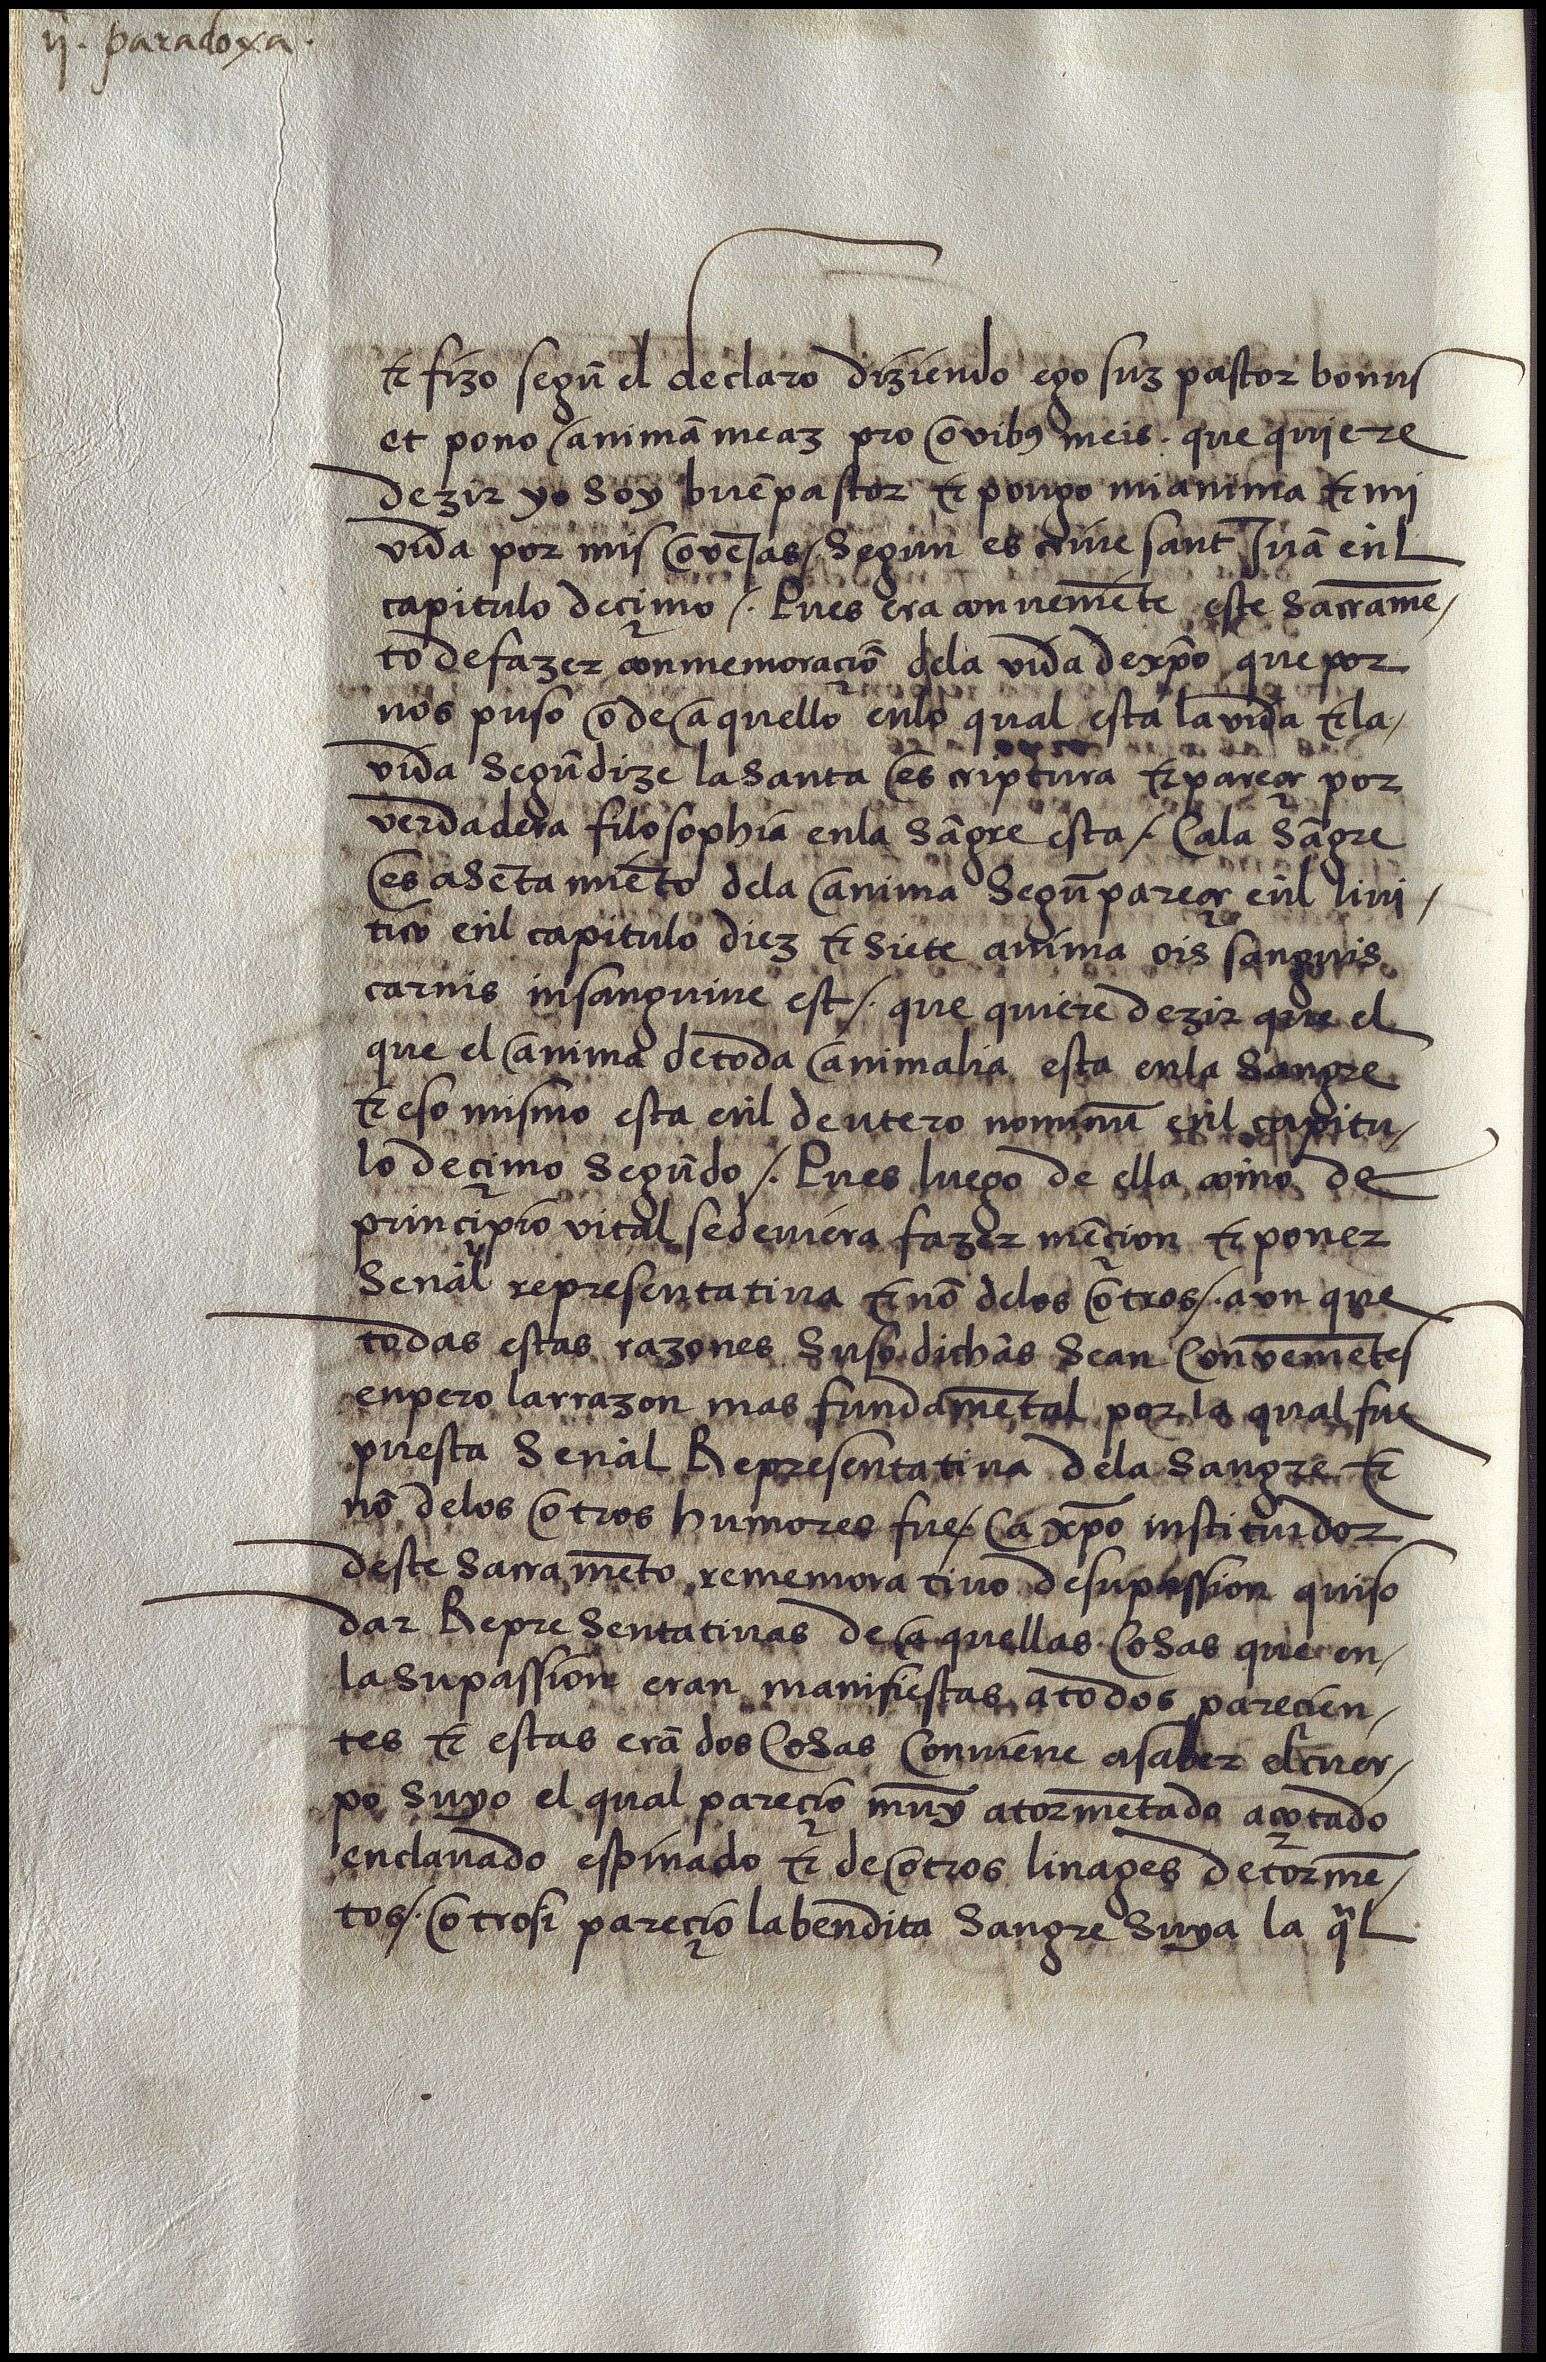 ij. paradoxa.
⁊ fizo segũ el declaro diziendo ego suz pastor bonus
et pono animã meaz pro ovibꝰ meis. que quiere
dezir yo soy buẽ pastor ⁊ pongo mi anima ⁊ mi
vida por mis oveJas /. Segun escrive sant Juã eñl
capitulo deçimo /. Pues era conveniẽte este Sacramẽ/
to de fazer conmemoraçiõ dela vida de xp̃o que por
nos puso o de aquello enlo qual esta la vida ⁊ la/
vida Segũ dize la santa escriptura ⁊ pareçe por
verdadera filosophia enla Sãgre esta /. Ca la Sãgre
es asẽtamiẽto dela anima Segũ pareçe eñl livi/
tico eñl capitulo diez ⁊ siete anima oĩs sanguis
carnis in sanguine est /. que quiere dezir que el
que el anima de toda animalia esta enla Sangre
⁊ eso mismo esta eñl deuteronominũ eñl capitu/
lo deçimo Segũdo /. Pues luego de ella como de
prinçipio vital se deviera fazer mẽçion ⁊ poner
Señal representativa ⁊ nõ delos otros /. aun que
todas estas razones Suso dichas Sean Conveniẽtes
enpero la rrazon mas fundamẽtal por la qual fue
puesta Señal Representativa dela Sangre ⁊
nõ delos otros humores fue /. Ca xp̃o instituidor
deste Sacramẽto rememorativo de su passion quiso
dar Representativas de aquellas Cosas que en/
la su passion eran manifiestas a todos parecien/
tes ⁊ estas erã dos Cosas Conviene a saber el cuer/
po Suyo el qual pareçio muy atormẽtado açotado
enclavado espinado ⁊ de otros linages de tormẽ/
tos /. otrosi pareçio la bendita Sangre Suya la q̃l